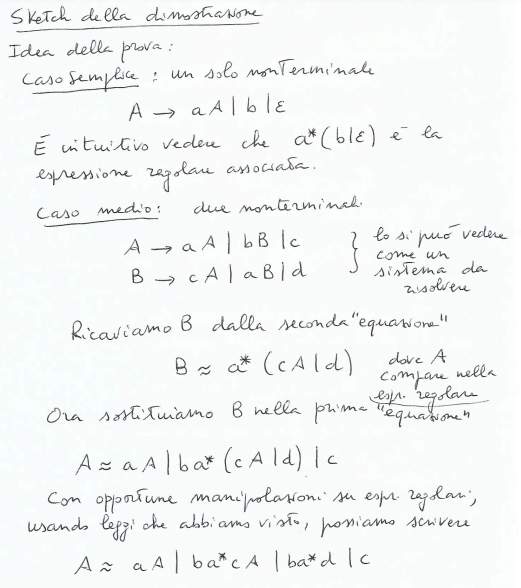 Sketch della dimostrazione
Idea della prova:
Caso semplice: un solo nonterminale
A → aA | b | ε
È intuitivo vedere che a*(b|ε) è la
espressione regolare associata.
Caso medio: due nonterminali
A → aA | bB | c
B → cA | aB | d
} lo si può vedere
come un
sistema da
risolvere
Ricaviamo B dalla seconda "equazione"
B ≈ a* (cA | d)
dove A
compare nella
espr. regolare
Ora sostituiamo B nella prima "equazione"
A ≈ aA | ba* (cA | d) | c
Con opportune manipolazioni su espr. regolari,
usando leggi che abbiamo visto, possiamo scrivere
A ≈ aA | ba*cA | ba*d | c